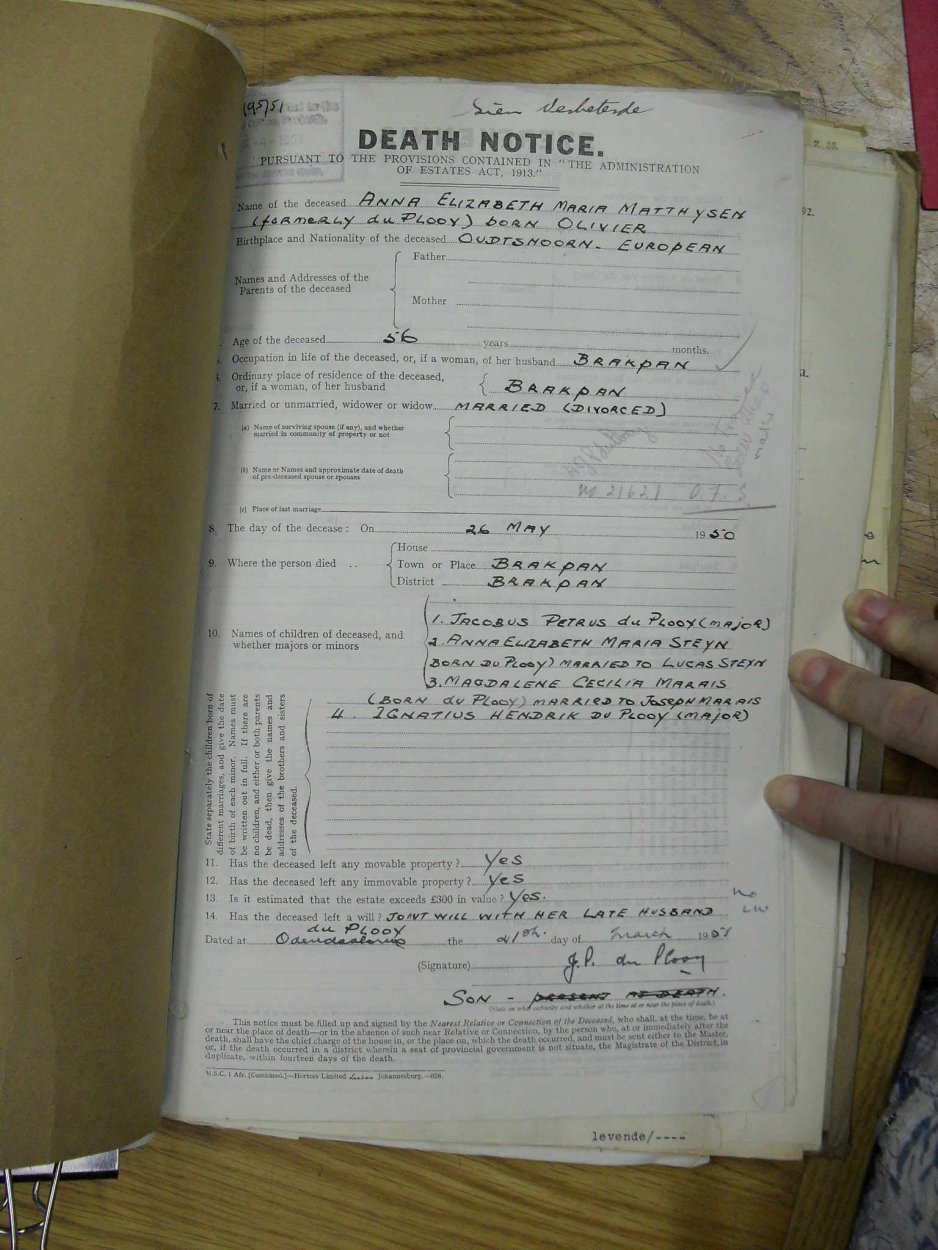 195/51
Sien Verbeterde
DEATH NOTICE.
PURSUANT TO THE PROVISIONS CONTAINED IN "THE ADMINISTRATION
OF ESTATES ACT, 1913."
Name of the deceased ANNA ELIZABETH MARIA MATTHYSEN
(formerly du Plooy) born OLIVIER
Birthplace and Nationality of the deceased OUDTSHOORN - EUROPEAN
Names and Addresses of the
Parents of the deceased
Father
Mother
Age of the deceased 56 years months.
Occupation in life of the deceased, or, if a woman, of her husband BRAKPAN
Ordinary place of residence of the deceased,
or, if a woman, of her husband BRAKPAN
7. Married or unmarried, widower or widow MARRIED (DIVORCED)
(a) Name of surviving spouse (if any), and whether
married in community of property or not
(b) Name or Names and approximate date of death
of pre-deceased spouse or spouses
no 21621 O.F.S
(c) Place of last marriage
8. The day of the decease: On 26 MAY 1950
9. Where the person died ..
House
Town or Place BRAKPAN
District BRAKPAN
10. Names of children of deceased, and
whether majors or minors
1. JACOBUS PETRUS du PLOOY (major)
2. ANNA ELIZABETH MARIA STEYN
BORN DU PLOOY) MARRIED TO LUCAS STEYN
3. MAGDALENE CECILIA MARAIS
(BORN du PLOOY) MARRIED TO JOSEPH MARAIS
4. IGNATIUS HENDRIK DU PLOOY (major)
State separately the children born of
different marriages, and give the date
of birth of each minor. Names must
be written out in full. If there are
no children, and either or both parents
be dead, then give the names and
addresses of the brothers and sisters
of the deceased.
11. Has the deceased left any movable property? Yes
12. Has the deceased left any immovable property? Yes
13. Is it estimated that the estate exceeds £300 in value? Yes.
14. Has the deceased left a will? JOINT WILL WITH HER LATE HUSBAND
du PLOOY
Dated at Odendaalsrus the 21th. day of March 1951
(Signature) J.P. du Plooy
SON - PRESENT AT DEATH.
(State in what capacity and whether at the time at or near the place of death.)
This notice must be filled up and signed by the Nearest Relative or Connection of the Deceased, who shall, at the time, be at
or near the place of death—or in the absence of such near Relative or Connection, by the person who, at or immediately after the
death, shall have the chief charge of the house in, or the place on, which the death occurred, and must be sent either to the Master,
or, if the death occurred in a district wherein a seat of provincial government is not situate, the Magistrate of the District, in
duplicate, within fourteen days of the death.
M.S.C. 1 Afr. (Combined.)—Hortors Limited Johannesburg.—626.
levende/----